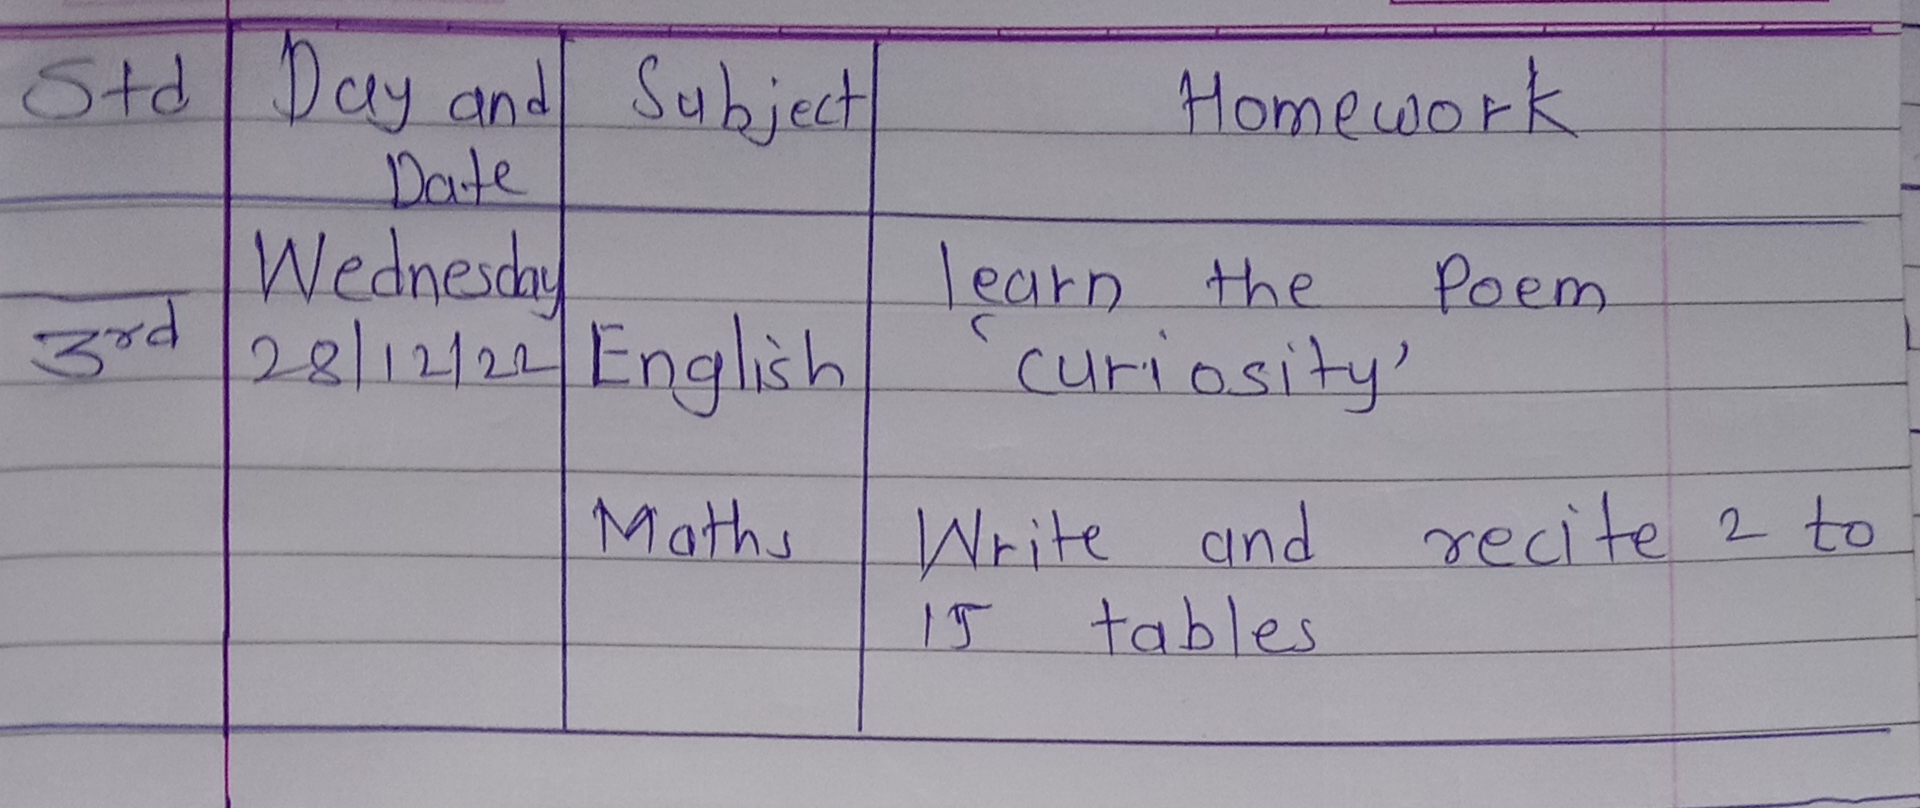 Std Day and Subject Homework
Date
Wednesday learn the Poem
3rd 28/12/22 English 'curiosity'
Maths Write and recite 2 to
15 tables